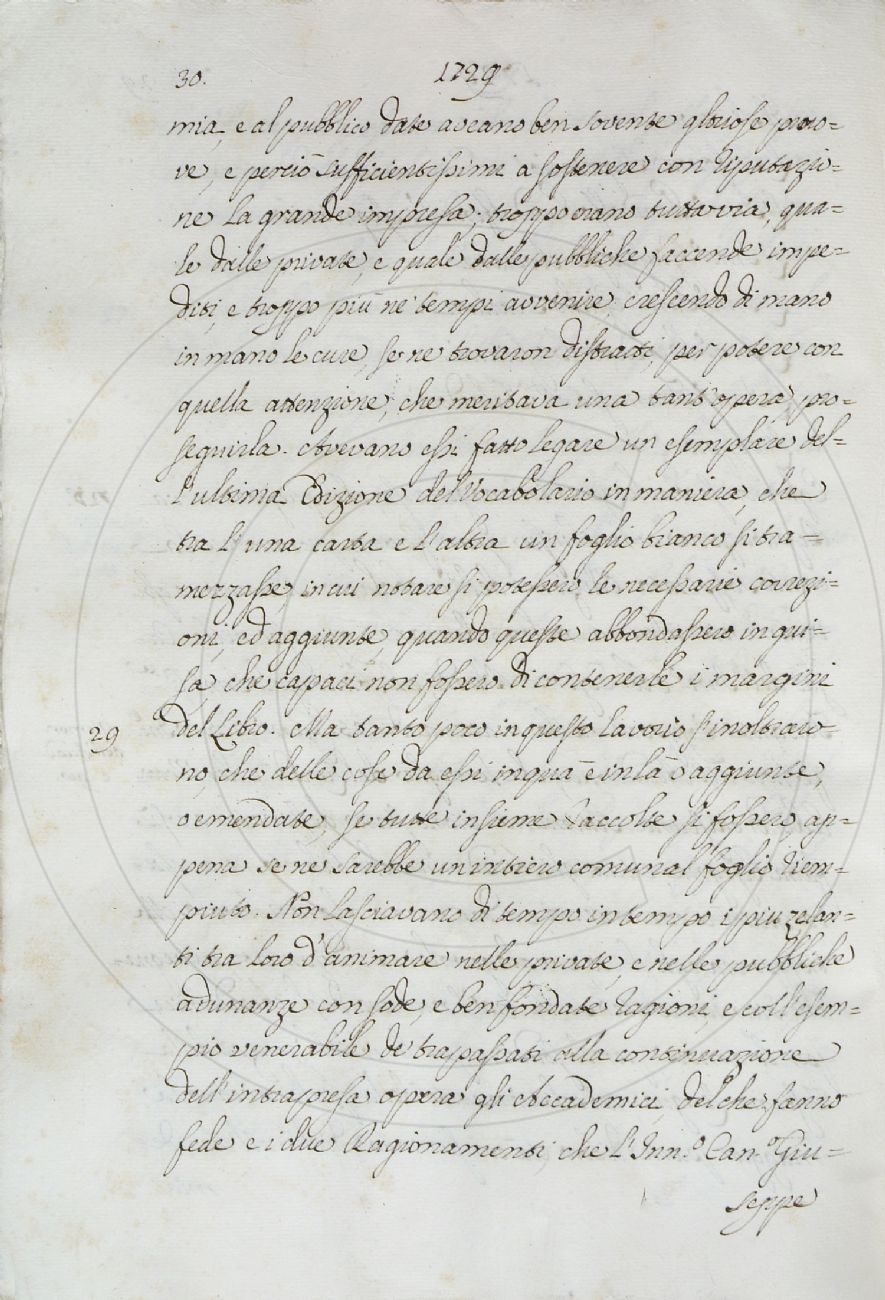 30. 1729
mia, e al pubblico date aveano ben sovente gloriose pruo=
ve, e perciò sufficientissimi a sostenere con riputazio=
ne la grande impresa; troppo erano tuttavia, qua=
le dalle private, e quale dalle pubbliche faccende impe=
diti, e troppo più ne' tempi avvenire, crescendo di mano
in mano le cure, se ne trovaron distratti, per potere con
quella attenzione, che meritava una tant'opera, pro=
seguirla. Avevano essi fatto legare un esemplare del=
l'ultima Edizione del Vocabolario in maniera, che
tra l'una carta e l'altra un foglio bianco si tra=
mezzasse, in cui notare si potessero le necessarie correzi=
oni, ed aggiunte, quando queste abbondassero in gui=
sa, che capaci non fossero di contenerle i margini
29 del Libro. Ma tanto poco in questo lavorio s'inoltraro=
no, che delle cose da essi in quà e in là o aggiunte,
o emendate, se tutte insieme raccolte si fossero, ap=
pena se ne sarebbe un intiero comunal foglio riem=
piuto. Non lasciavano di tempo in tempo i più zelan=
ti tra loro d'animare nelle private, e nelle pubbliche
adunanze con sode, e ben fondate ragioni, e coll'esem=
pio venerabile de' trapassati alla continuazione
dell'intrapresa opera gli Accademici, del che fanno
fede e i due Ragionamenti, che l'Inn.º Can.º Giu=
seppe